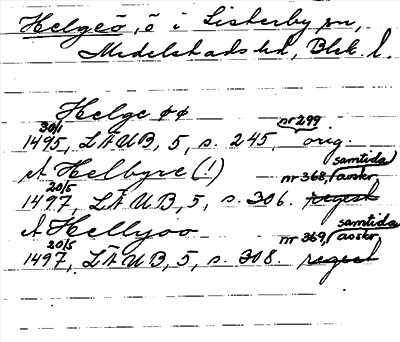 Helgeö, ö i Listerby sn,
Medelstads hd, Blek. l.
Helge øø
30/1 nr 299
1495, LÄUB, 5, s. 245, orig.
A Helbyre (!) samtida
20/5 nr 368, avskr.
1497, LÄUB, 5, s. 306. regest
A Hellyoo samtida
20/5 nr 369, avskr.
1497, LÄUB, 5, s. 308. regest